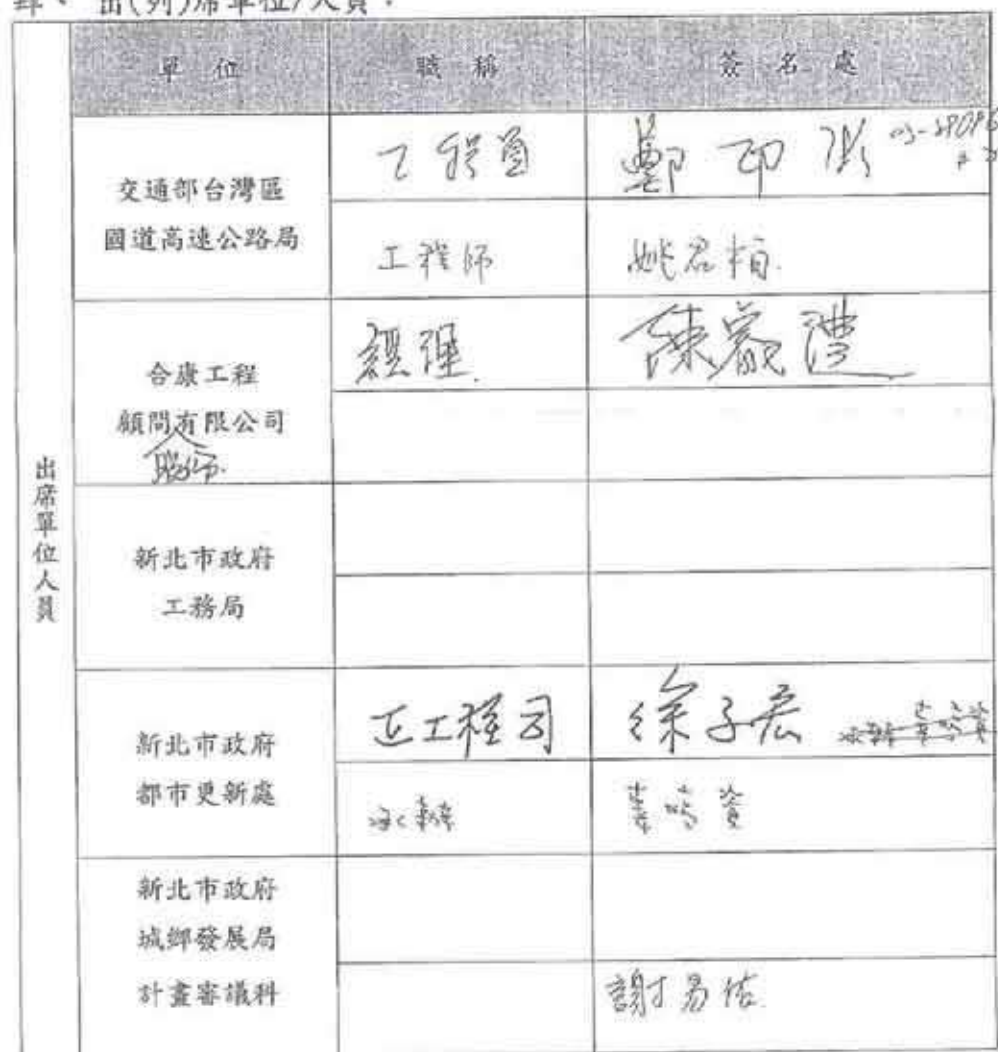 肆、 出(列)席單位/人員：
單 位 職 稱 簽 名 處
出席單位人員
交通部台灣區
國道高速公路局
工程員 鄭
工程師 姚君柏
合康工程
顧問有限公司
經理 陳
新北市政府
工務局
新北市政府
都市更新處
正工程司 徐子宏
承辦
新北市政府
城鄉發展局
計畫審議科
謝易佑